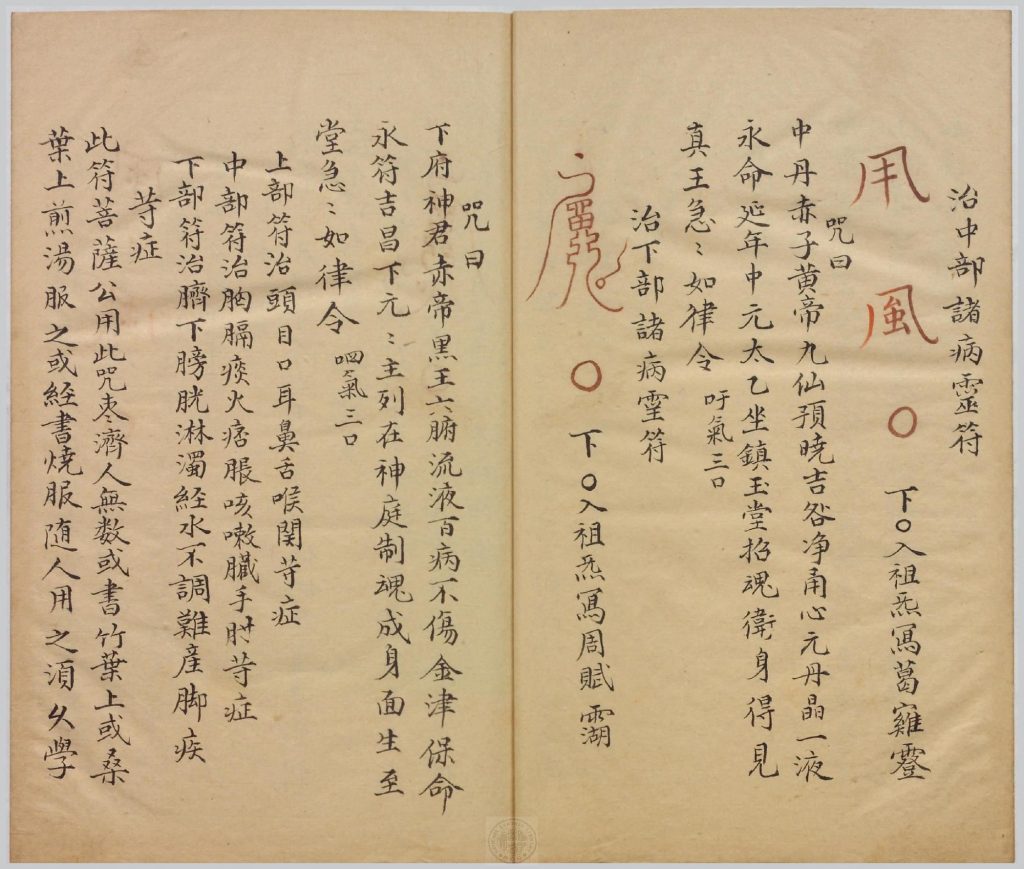 治中部諸病霊符
用風〇 下〇入祖炁冩葛雞霆
咒曰
中丹赤子黄帝九仙預曉吉咎净甬心元丹晶一液
永命延年中元太乙坐鎮玉堂招魂衛身得見
真王急〻如律令 吁氣三口
治下部諸病霊符
〇 下〇入祖炁冩周賦
咒曰
下府神君赤帝黒王六腑流液百病不傷金津保命
永符吉昌下元〻主列在神庭制魂成身面生至
堂急〻如律令 呬氣三口
上部符治頭目口耳鼻舌喉関䓁症
中部符治胸膈痰火痞脹咳嗽臟手肘䓁症
下部符治臍下膀胱淋濁経水不調難産脚疾
䓁症
此符菩薩公用此咒枣濟人無数或書竹葉上或桑
葉上煎湯服之或経書燒服随人用之湏久學